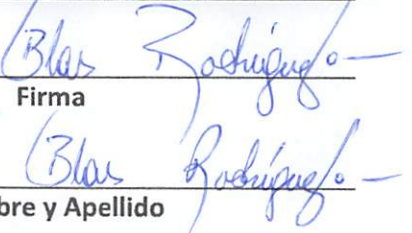 Blas Rodríguez
Firma
Blas Rodríguez
bre y Apellido